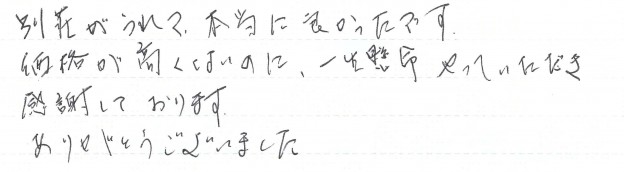 別荘がうれて、本当に良かったです。
価格が高くはないのに、一生懸命やっていただき
感謝しております。
ありがとうございました